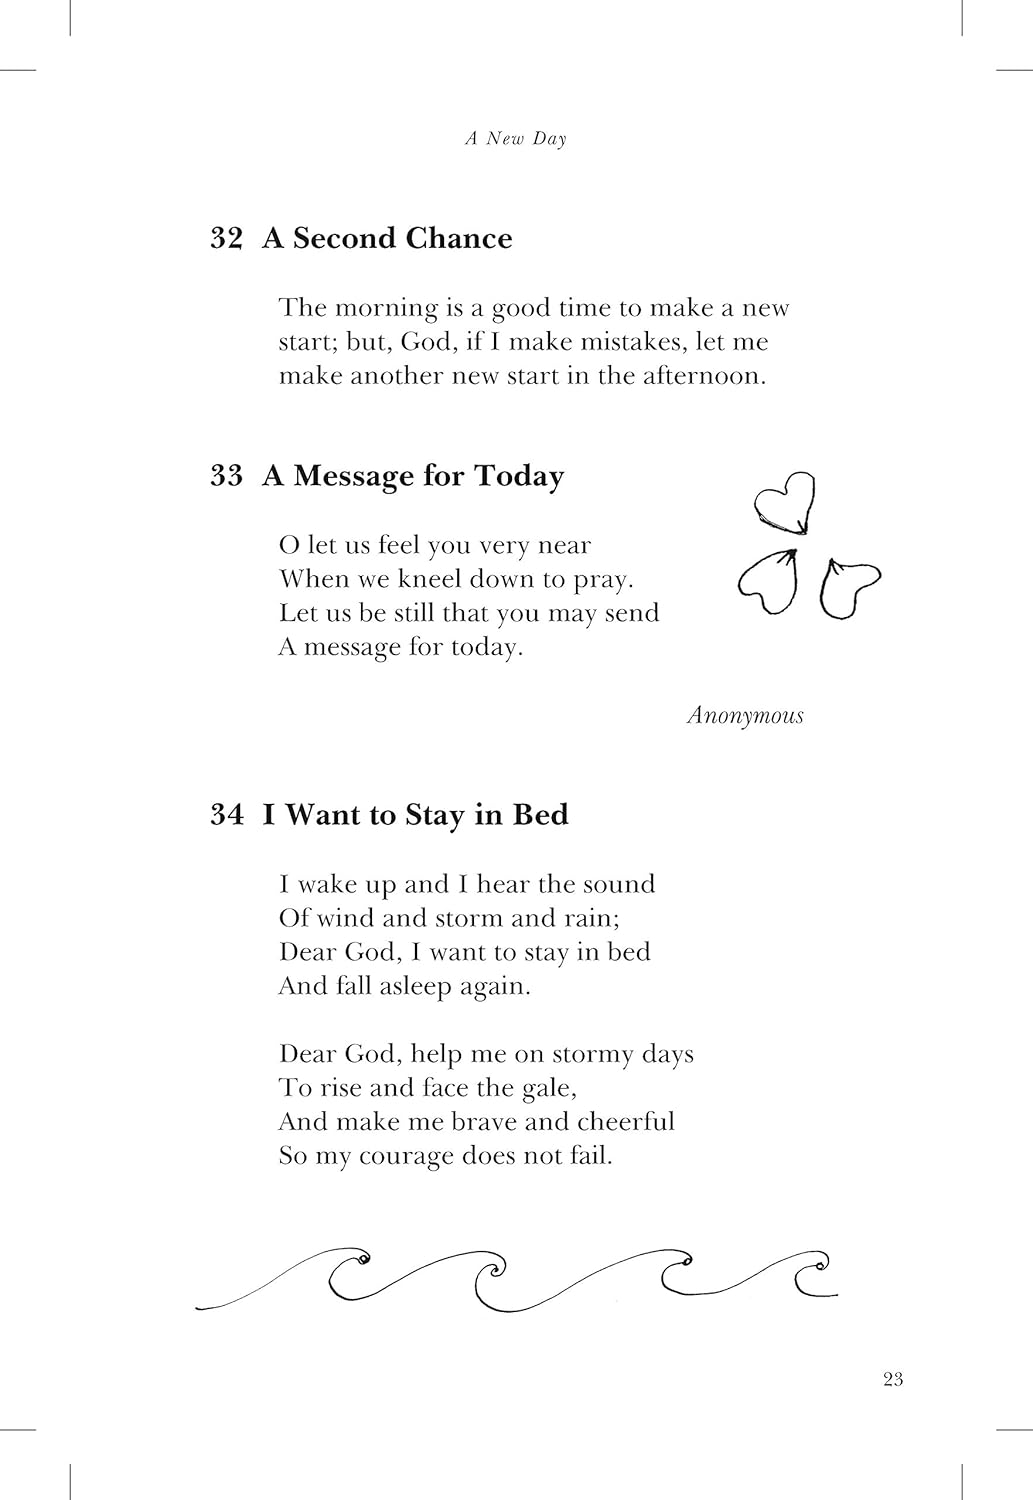 A New Day
32 A Second Chance
The morning is a good time to make a new
start; but, God, if I make mistakes, let me
make another new start in the afternoon.
33 A Message for Today
O let us feel you very near
When we kneel down to pray.
Let us be still that you may send
A message for today.
Anonymous
34 I Want to Stay in Bed
I wake up and I hear the sound
Of wind and storm and rain;
Dear God, I want to stay in bed
And fall asleep again.
Dear God, help me on stormy days
To rise and face the gale,
And make me brave and cheerful
So my courage does not fail.
23